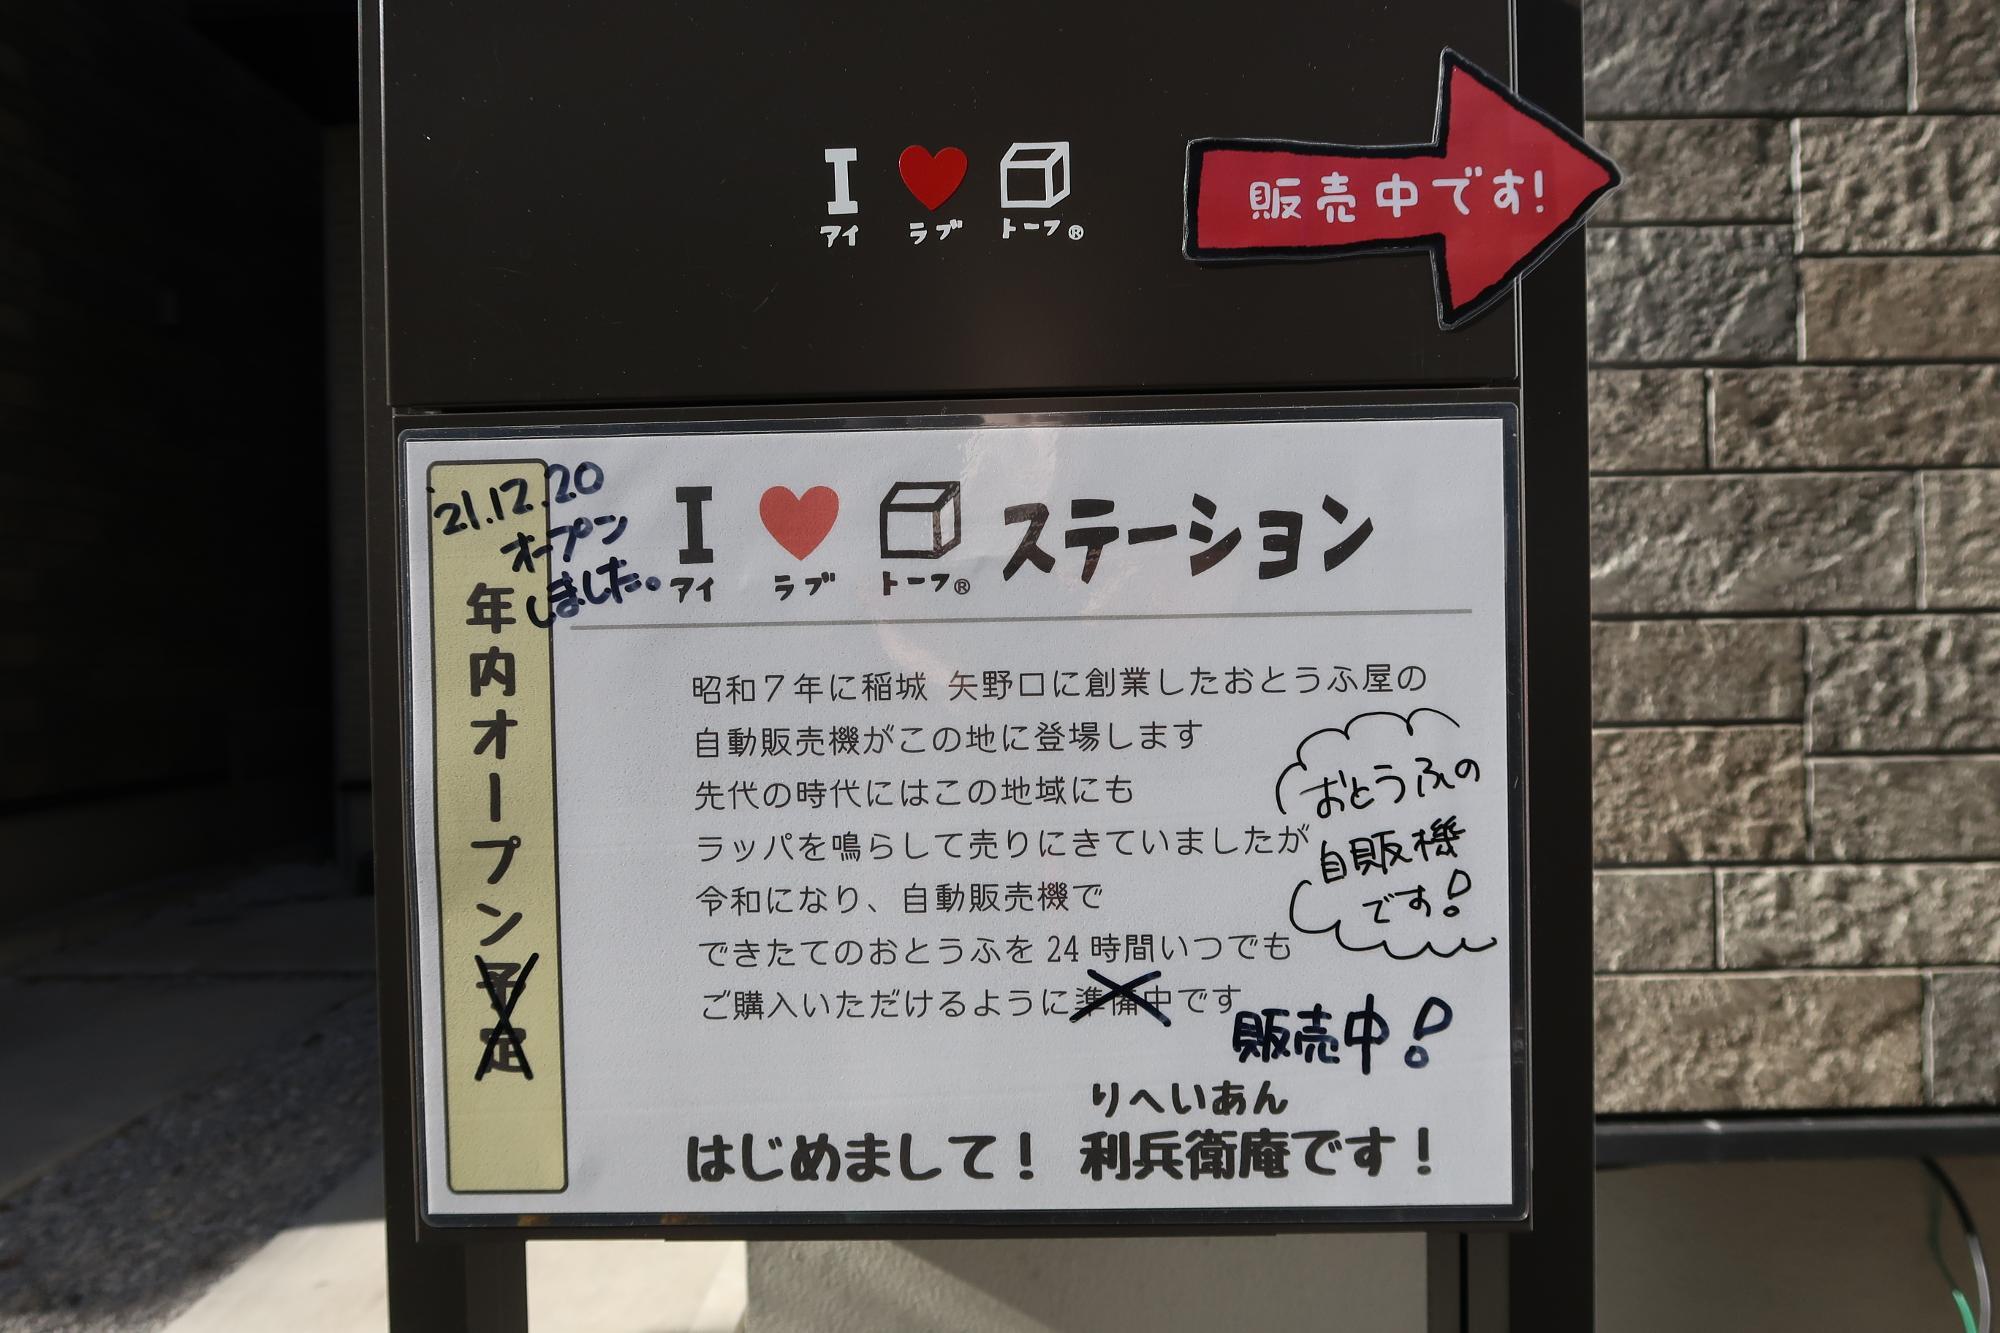 I
アイ ラブ トーフ®
販売中です!
21.12.20
オープン
しました。
年内オープン予定
I ステーション
アイ ラブ トーフ®
昭和7年に稲城 矢野口に創業したおとうふ屋の
自動販売機がこの地に登場します
先代の時代にはこの地域にも
ラッパを鳴らして売りにきていましたが
令和になり、自動販売機で
できたてのおとうふを24時間いつでも
ご購入いただけるように準備中です
販売中!
おとうふの
自販機
です!
りへいあん
はじめまして! 利兵衛庵です!